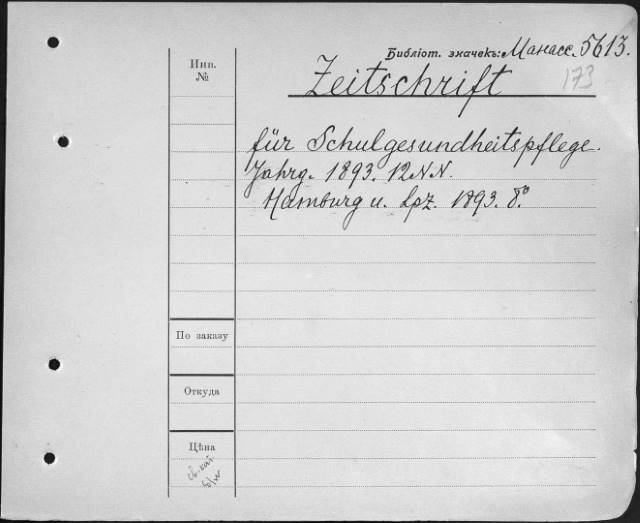 Библіот. значекъ: Манасс. 5613.
173
Инв. №
Zeitschrift
für Schulgesundheitspflege.
Jahrg. 1893. 12 N.N.
Hamburg u. Lpz. 1893. 8.°
По заказу
Откуда
Цѣна